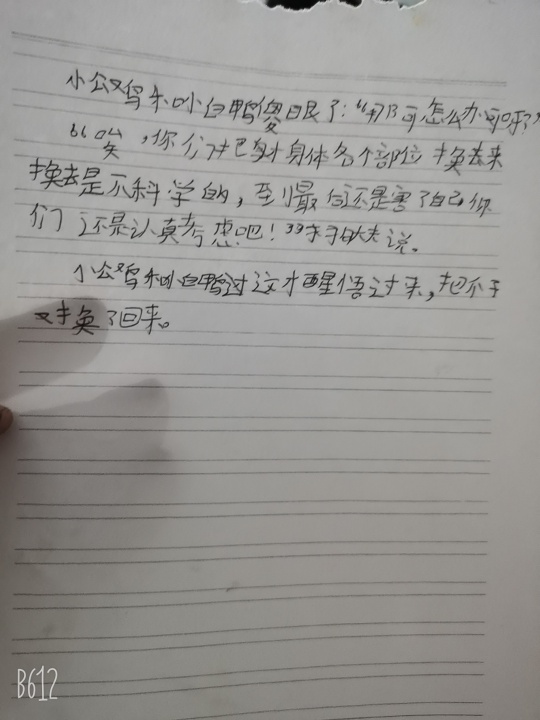 小公鸡和小白鸭傻眼了:“那可怎么办呀?”
“唉,你们把身体各个部位换去来
换去是不科学的,到最后还是害了自己你
们还是认真考虑吧!”大夫说。
小公鸡和小白鸭这才醒悟过来,把
又换了回来。
B612